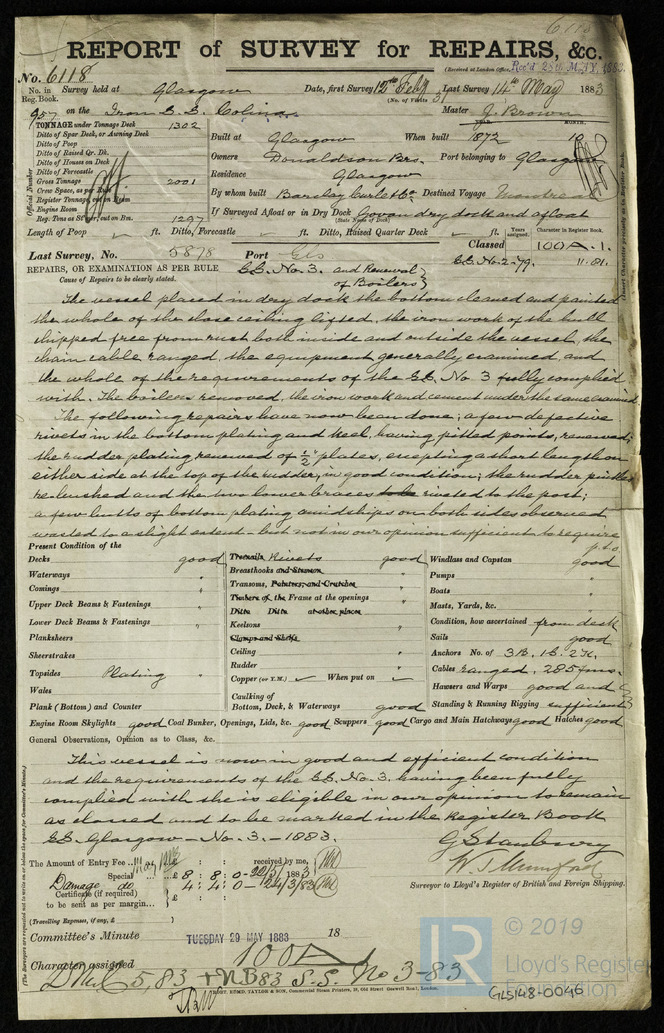 REPORT of SURVEY for REPAIRS, &c.
No. 6118
(Received at London Office, Rec'd 28th MAY. 1883.
No. in Reg. Book. Survey held at Glasgow Date, first Survey 12th Feby Last Survey 14th May 1883
(No. of Visits
957 on the Iron S.S. Colina Master J. Brown
TONNAGE under Tonnage Deck 1302
Ditto of Spar Deck, or Awning Deck
Ditto of Poop
Ditto of Raised Qr. Dk.
Ditto of House on Deck
Ditto of Forecastle
Gross Tonnage 2001
Crew Space, as per Rule
Register Tonnage, cut on Beam
Engine Room
Reg. Tons as St'mr, cut on Bm. 1297
Official Number
Built at Glasgow When built 1872 10
YEAR. MONTH.
Owners Donaldson Bros. Port belonging to Glasgow
Residence Glasgow
By whom built Barclay Curle & Co Destined Voyage Montreal
If Surveyed Afloat or in Dry Dock Govan dry dock and afloat
(State Name of Dock)
Length of Poop ft. Ditto, Forecastle ft. Ditto, Raised Quarter Deck ft.
Years assigned. Character in Register Book.
Last Survey, No. 5878 Port Gls Classed 100A.1.
S.S. No. 2-79. 11.81.
REPAIRS, OR EXAMINATION AS PER RULE S.S. No. 3. and Renewal of Boilers
Cause of Repairs to be clearly stated.
The vessel placed in dry dock the bottom cleaned and painted
the whole of the close ceiling lifted, the iron work of the hull
chipped free from rust both inside and outside the vessel, the
chain cable ranged, the equipment generally examined and
the whole of the requirements of the S.S. No 3 fully complied
with. The boilers removed, the iron work and cement under the same examined
The following repairs have now been done; a few defective
rivets in the bottom plating and keel, having pitted points, renewed;
the rudder plating renewed of ½" plates, excepting a short length on
either side at the top of the rudder, in good condition; the rudder pintles
rebushed and the two lower braces to be riveted to the post;
a few butts of bottom plating amidships on both sides observed
wasted to a slight extent - but not in our opinion sufficient to require
p.t.o
Present Condition of the
Decks good
Waterways "
Comings "
Upper Deck Beams & Fastenings "
Lower Deck Beams & Fastenings "
Planksheers
Sheerstrakes
Topsides Plating
Wales
Plank (Bottom) and Counter
Treenails Rivets good
Breasthooks and Stemson "
Transoms, Pointers, and Crutches "
Timbers of the Frame at the openings "
Ditto Ditto at other places
Keelsons "
Clamps and Shelfs
Ceiling "
Rudder "
Copper (or Y.M.) When put on
Caulking of
Bottom, Deck, & Waterways good
Windlass and Capstan good
Pumps "
Boats "
Masts, Yards, &c. "
Condition, how ascertained from deck
Sails good
Anchors No. of 3B. 1S. 2K.
Cables ranged. 285 fms.
Hawsers and Warps good and
Standing & Running Rigging sufficient
Engine Room Skylights good Coal Bunker, Openings, Lids, &c. good Scuppers good Cargo and Main Hatchways good Hatches good
General Observations, Opinion as to Class, &c.
This vessel is now in good and efficient condition
and the requirements of the S.S. No. 3. having been fully
complied with she is eligible in our opinion to remain
as classed and to be marked in the Register Book
S.S. Glasgow - No. 3. - 1883.
G Stanbury
W. J. Mumford
Surveyor to Lloyd's Register of British and Foreign Shipping.
The Amount of Entry Fee received by me,
Special £ 8 : 8 : 0 - 1883
Damage do 4 : 4 : 0 -
Certificate (if required) £ : :
to be sent as per margin...
(Travelling Expenses, if any, £ )
Committee's Minute TUESDAY 29 MAY 1883 18
Character assigned 100A
5,83 + NB83 S.S. No 3-83
TAYLOR & SON, Commercial Steam Printers, 19, Old Street Goswell Road, London.
© 2019
LR
Lloyd's Register
Foundation
GLS148-0046